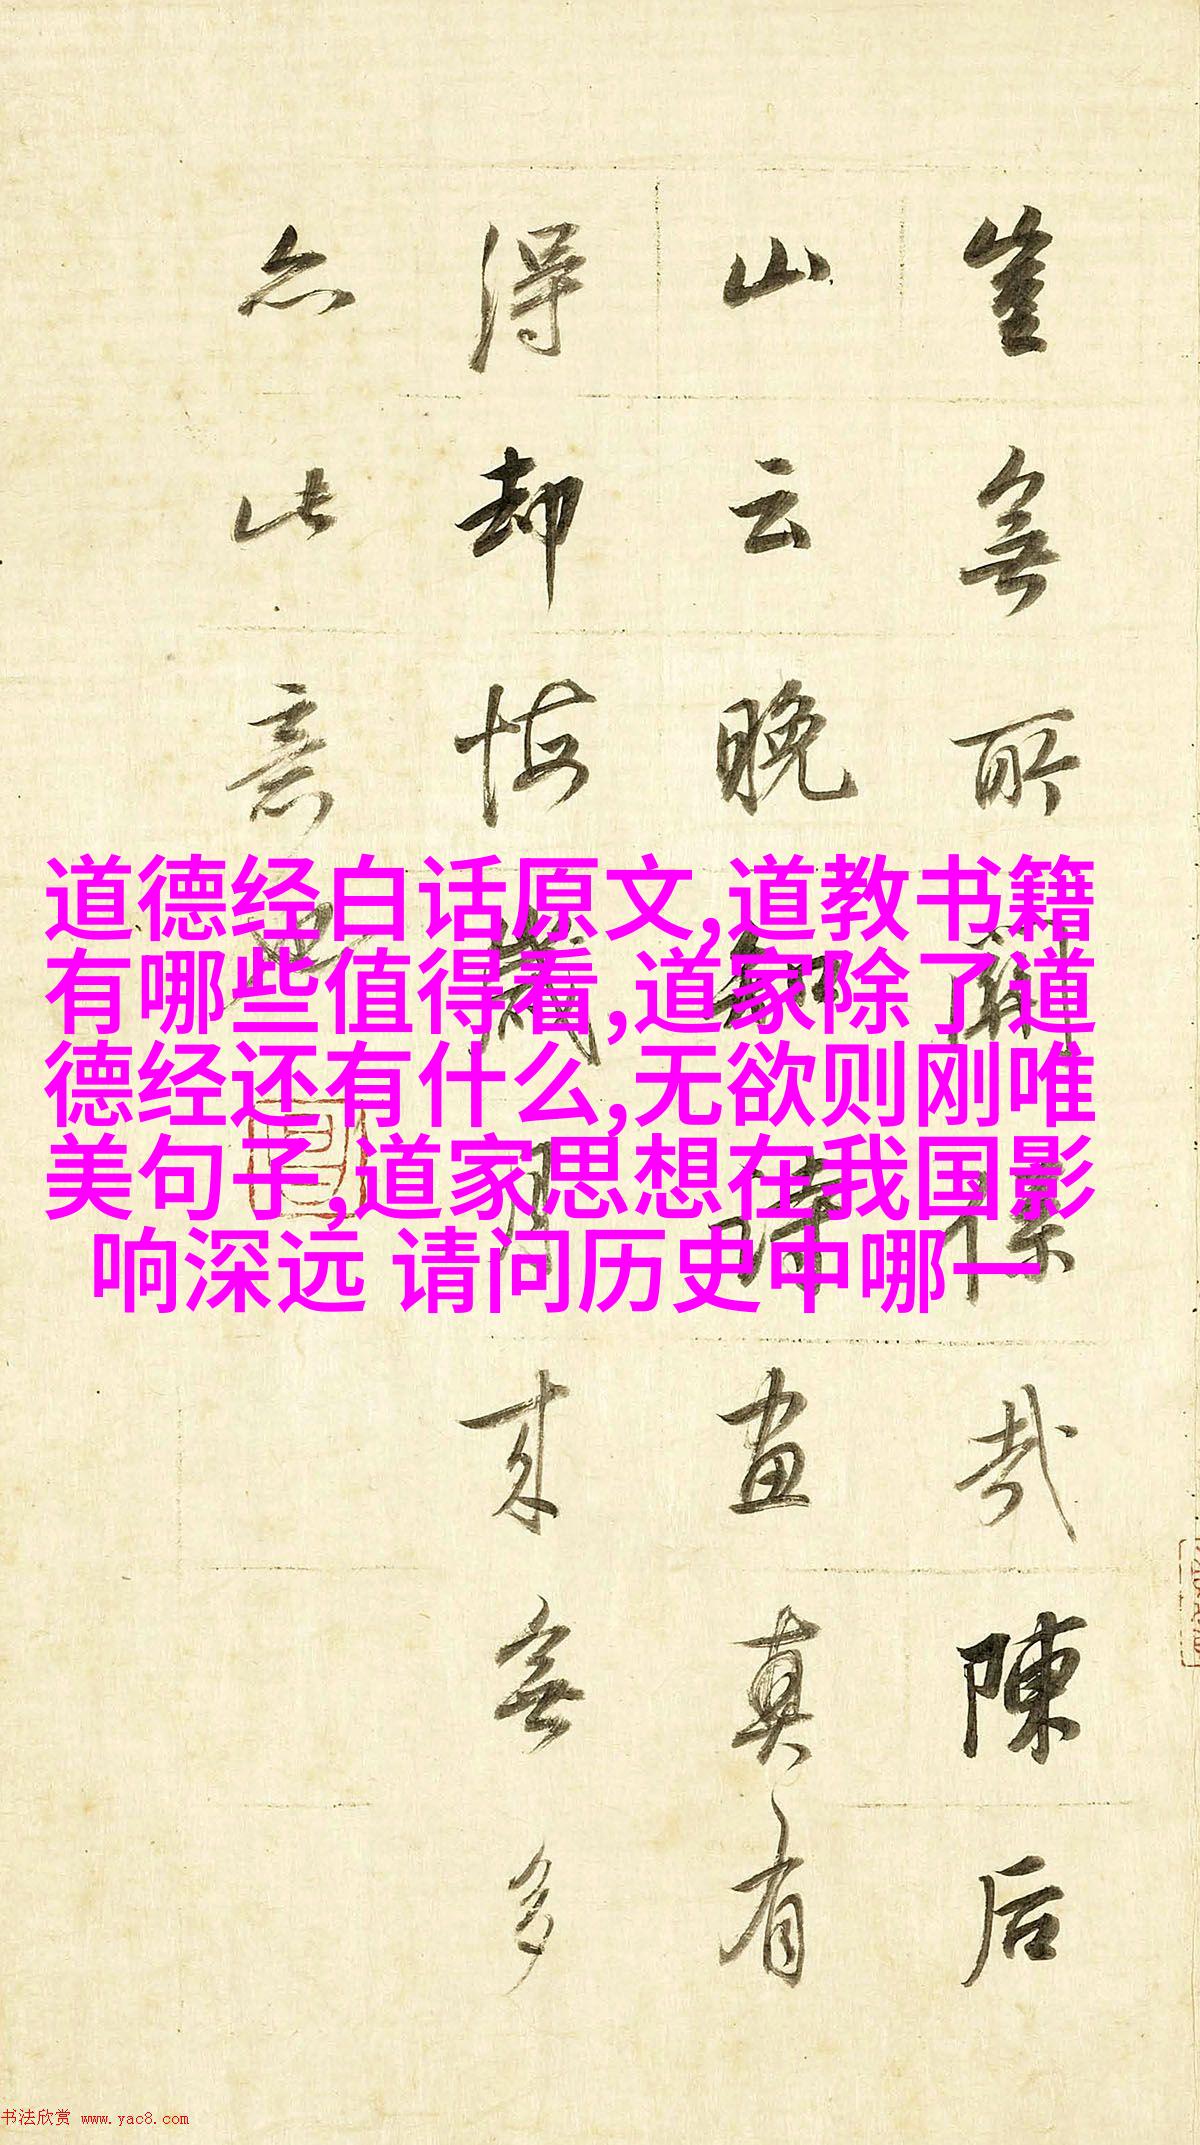 岂无所解后哉陈后
山云晚知诗画真有
得却悔岁月来无多
亦此意
道德经白话原文,道教书籍
有哪些值得看,道家除了道
德经还有什么,无欲则刚唯
美句子,道家思想在我国影
响深远 请问历史中哪一
书法欣赏 www.yac8.com